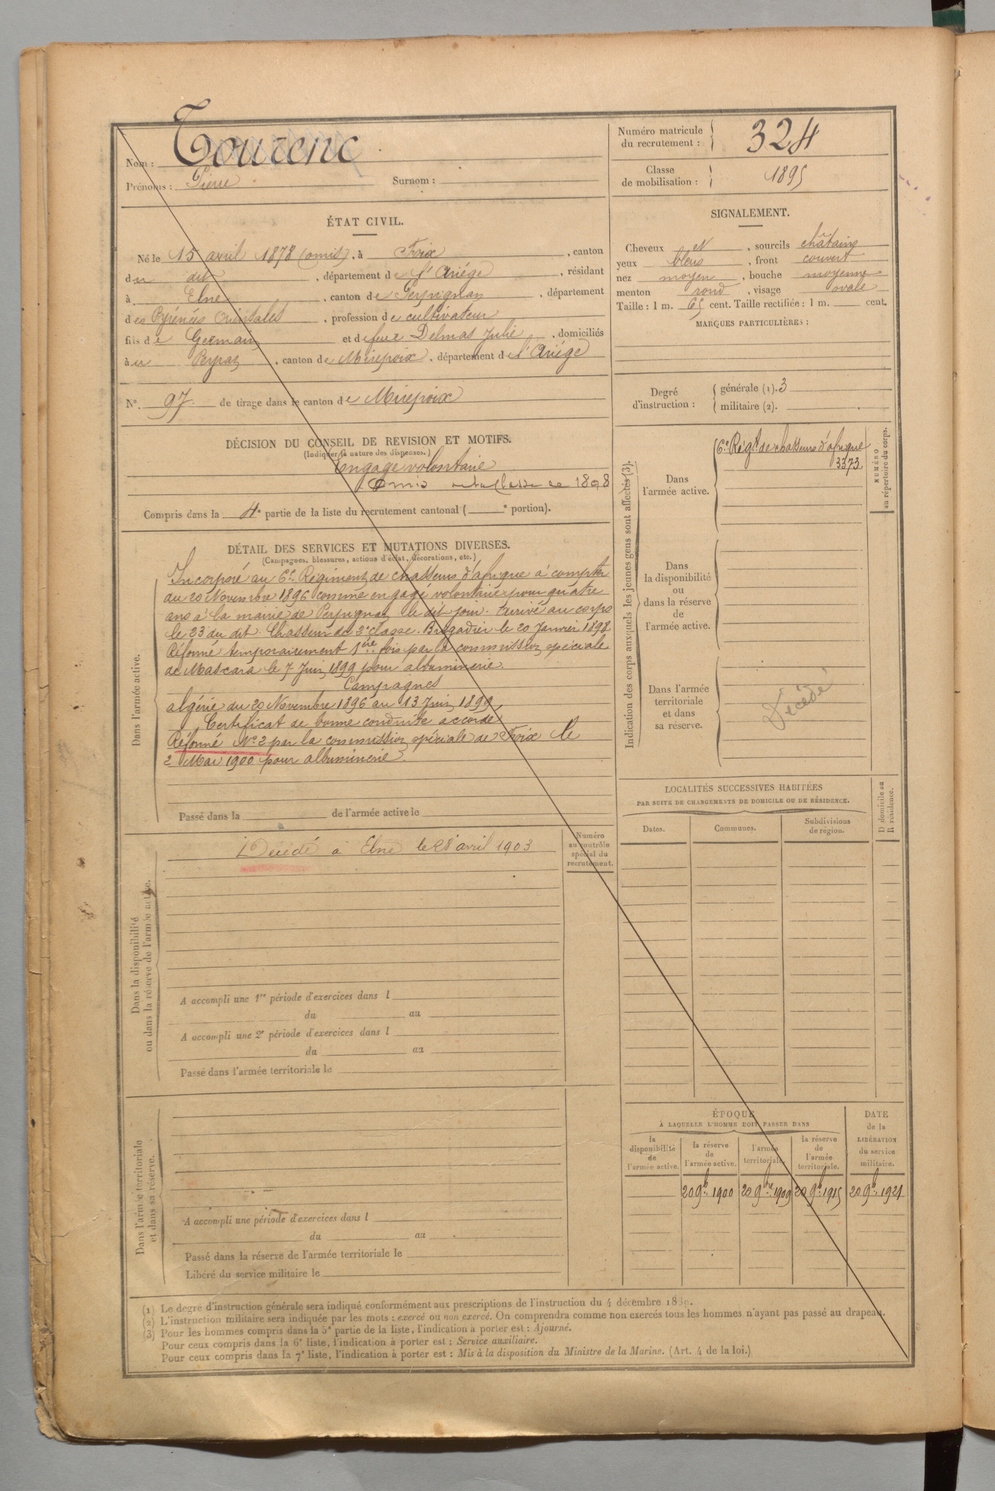 Nom : Tourenc
Prénoms : Pierre Surnom :
Numéro matricule du recrutement : 324
Classe de mobilisation : 1895
ÉTAT CIVIL.
Né le 15 avril 1878 (omis), à Foix, canton
du dit, département de l'Ariége, résidant
à Elne, canton de Perpignan, département
des Pyrénées Orientales, profession de cultivateur
fils de Germain et de feue Delmas Julie, domiciliés
à canton de Mirepoix, département de l'Ariége
N° 97 de tirage dans le canton de Mirepoix
SIGNALEMENT.
Cheveux N, sourcils châtains
yeux bleus, front couvert
nez moyen, bouche moyenne
menton rond, visage ovale
Taille : 1 m. 65 cent. Taille rectifiée : 1 m. cent.
MARQUES PARTICULIÈRES :
Degré d'instruction : générale (1). 3
militaire (2).
DÉCISION DU CONSEIL DE REVISION ET MOTIFS.
(Indiquer la nature des dispenses.)
Engagé volontaire
Omis de la classe de 1898
Compris dans la 4e partie de la liste du recrutement cantonal ( e portion).
DÉTAIL DES SERVICES ET MUTATIONS DIVERSES.
(Campagnes, blessures, actions d'éclat, décorations, etc.)
Dans l'armée active.
Incorporé au 6e Régiment de chasseurs d'afrique à compter
du 20 Novembre 1896 comme engagé volontaire pour quatre
ans à la mairie de Perpignan le dit jour. Arrivé au corps
le 23 du dit Chasseur de 2e classe. Brigadier le 20 Janvier 1898
Réformé temporairement 1ère fois par la commission spéciale
de Mascara le 7 Juin 1899 pour albuminerie.
Campagnes
algérie du 20 Novembre 1896 au 13 Juin 1899
Certificat de bonne conduite accordé
Réformé N°2 par la commission spéciale de Foix le
2 Mai 1900 pour albuminerie.
Passé dans la de l'armée active le
Dans la disponibilité ou dans la réserve de l'armée active.
Numéro au contrôle spécial du recrutement.
Décédé à Elne le 28 avril 1903
A accompli une 1re période d'exercices dans l
du au
A accompli une 2e période d'exercices dans l
du au
Passé dans l'armée territoriale le
Dans l'armée territoriale et dans sa réserve.
A accompli une période d'exercices dans l
du au
Passé dans la réserve de l'armée territoriale le
Libéré du service militaire le
Indication des corps auxquels les jeunes gens sont affectés (3).
NUMÉRO au répertoire du corps.
Dans l'armée active.
6e Régt de chasseurs d'afrique
3373
Dans la disponibilité ou dans la réserve de l'armée active.
Dans l'armée territoriale et dans sa réserve.
Décédé
LOCALITÉS SUCCESSIVES HABITÉES
PAR SUITE DE CHANGEMENTS DE DOMICILE OU DE RÉSIDENCE.
Dates. Communes. Subdivisions de région. D domicile ou R résidence.
ÉPOQUE
À LAQUELLE L'HOMME DOIT PASSER DANS
DATE de la LIBÉRATION du service militaire.
la disponibilité de l'armée active.
la réserve de l'armée active.
l'armée territoriale.
la réserve de l'armée territoriale.
20 9bre 1900 20 9bre 1909 20 9bre 1915 20 9bre 1921
(1) Le degré d'instruction générale sera indiqué conformément aux prescriptions de l'instruction du 4 décembre 1889.
(2) L'instruction militaire sera indiquée par les mots : exercé ou non exercé. On comprendra comme non exercés tous les hommes n'ayant pas passé au drapeau.
(3) Pour les hommes compris dans la 5e partie de la liste, l'indication à porter est : Ajourné.
Pour ceux compris dans la 6e liste, l'indication à porter est : Service auxiliaire.
Pour ceux compris dans la 7e liste, l'indication à porter est : Mis à la disposition du Ministre de la Marine. (Art. 4 de la loi.)